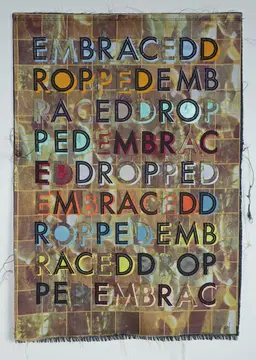 EMBRACEDD
ROPPEDEMB
RACEDDROP
PEDEMBRAC
EDDROPPED
EMBRACEDD
ROPPEDEMB
RACEDDROP
PEDEMBRAC